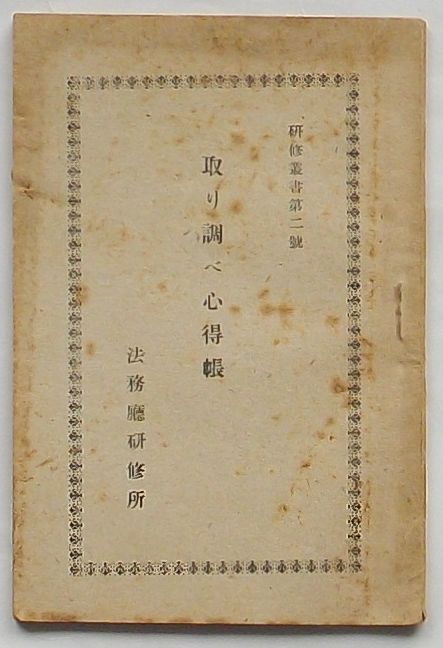 研修叢書第二號
取り調べ心得帳
法務廳研修所